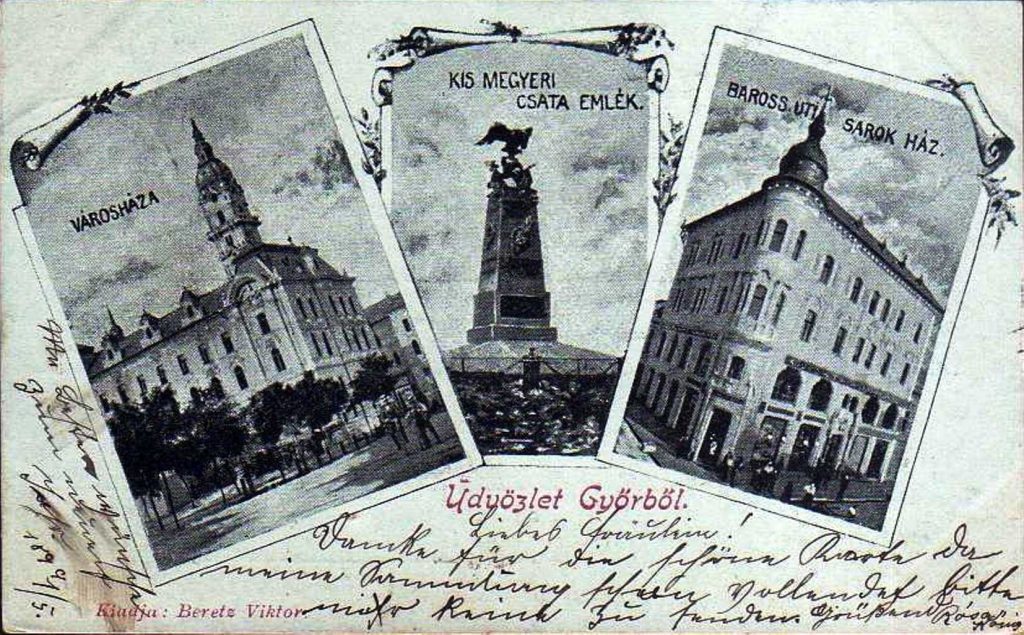 VÁROSHÁZA
KIS MEGYERI
CSATA EMLÉK.
BAROSS. UTI
SAROK HÁZ.
Üdvözlet Győrből.
Liebes Fräulein!
Danke für die schöne Karte Da
meine Sammlung schon vollendet bitte
mir keine zu senden. Grüßend Rósa
König
Kiadja: Beretz Viktor